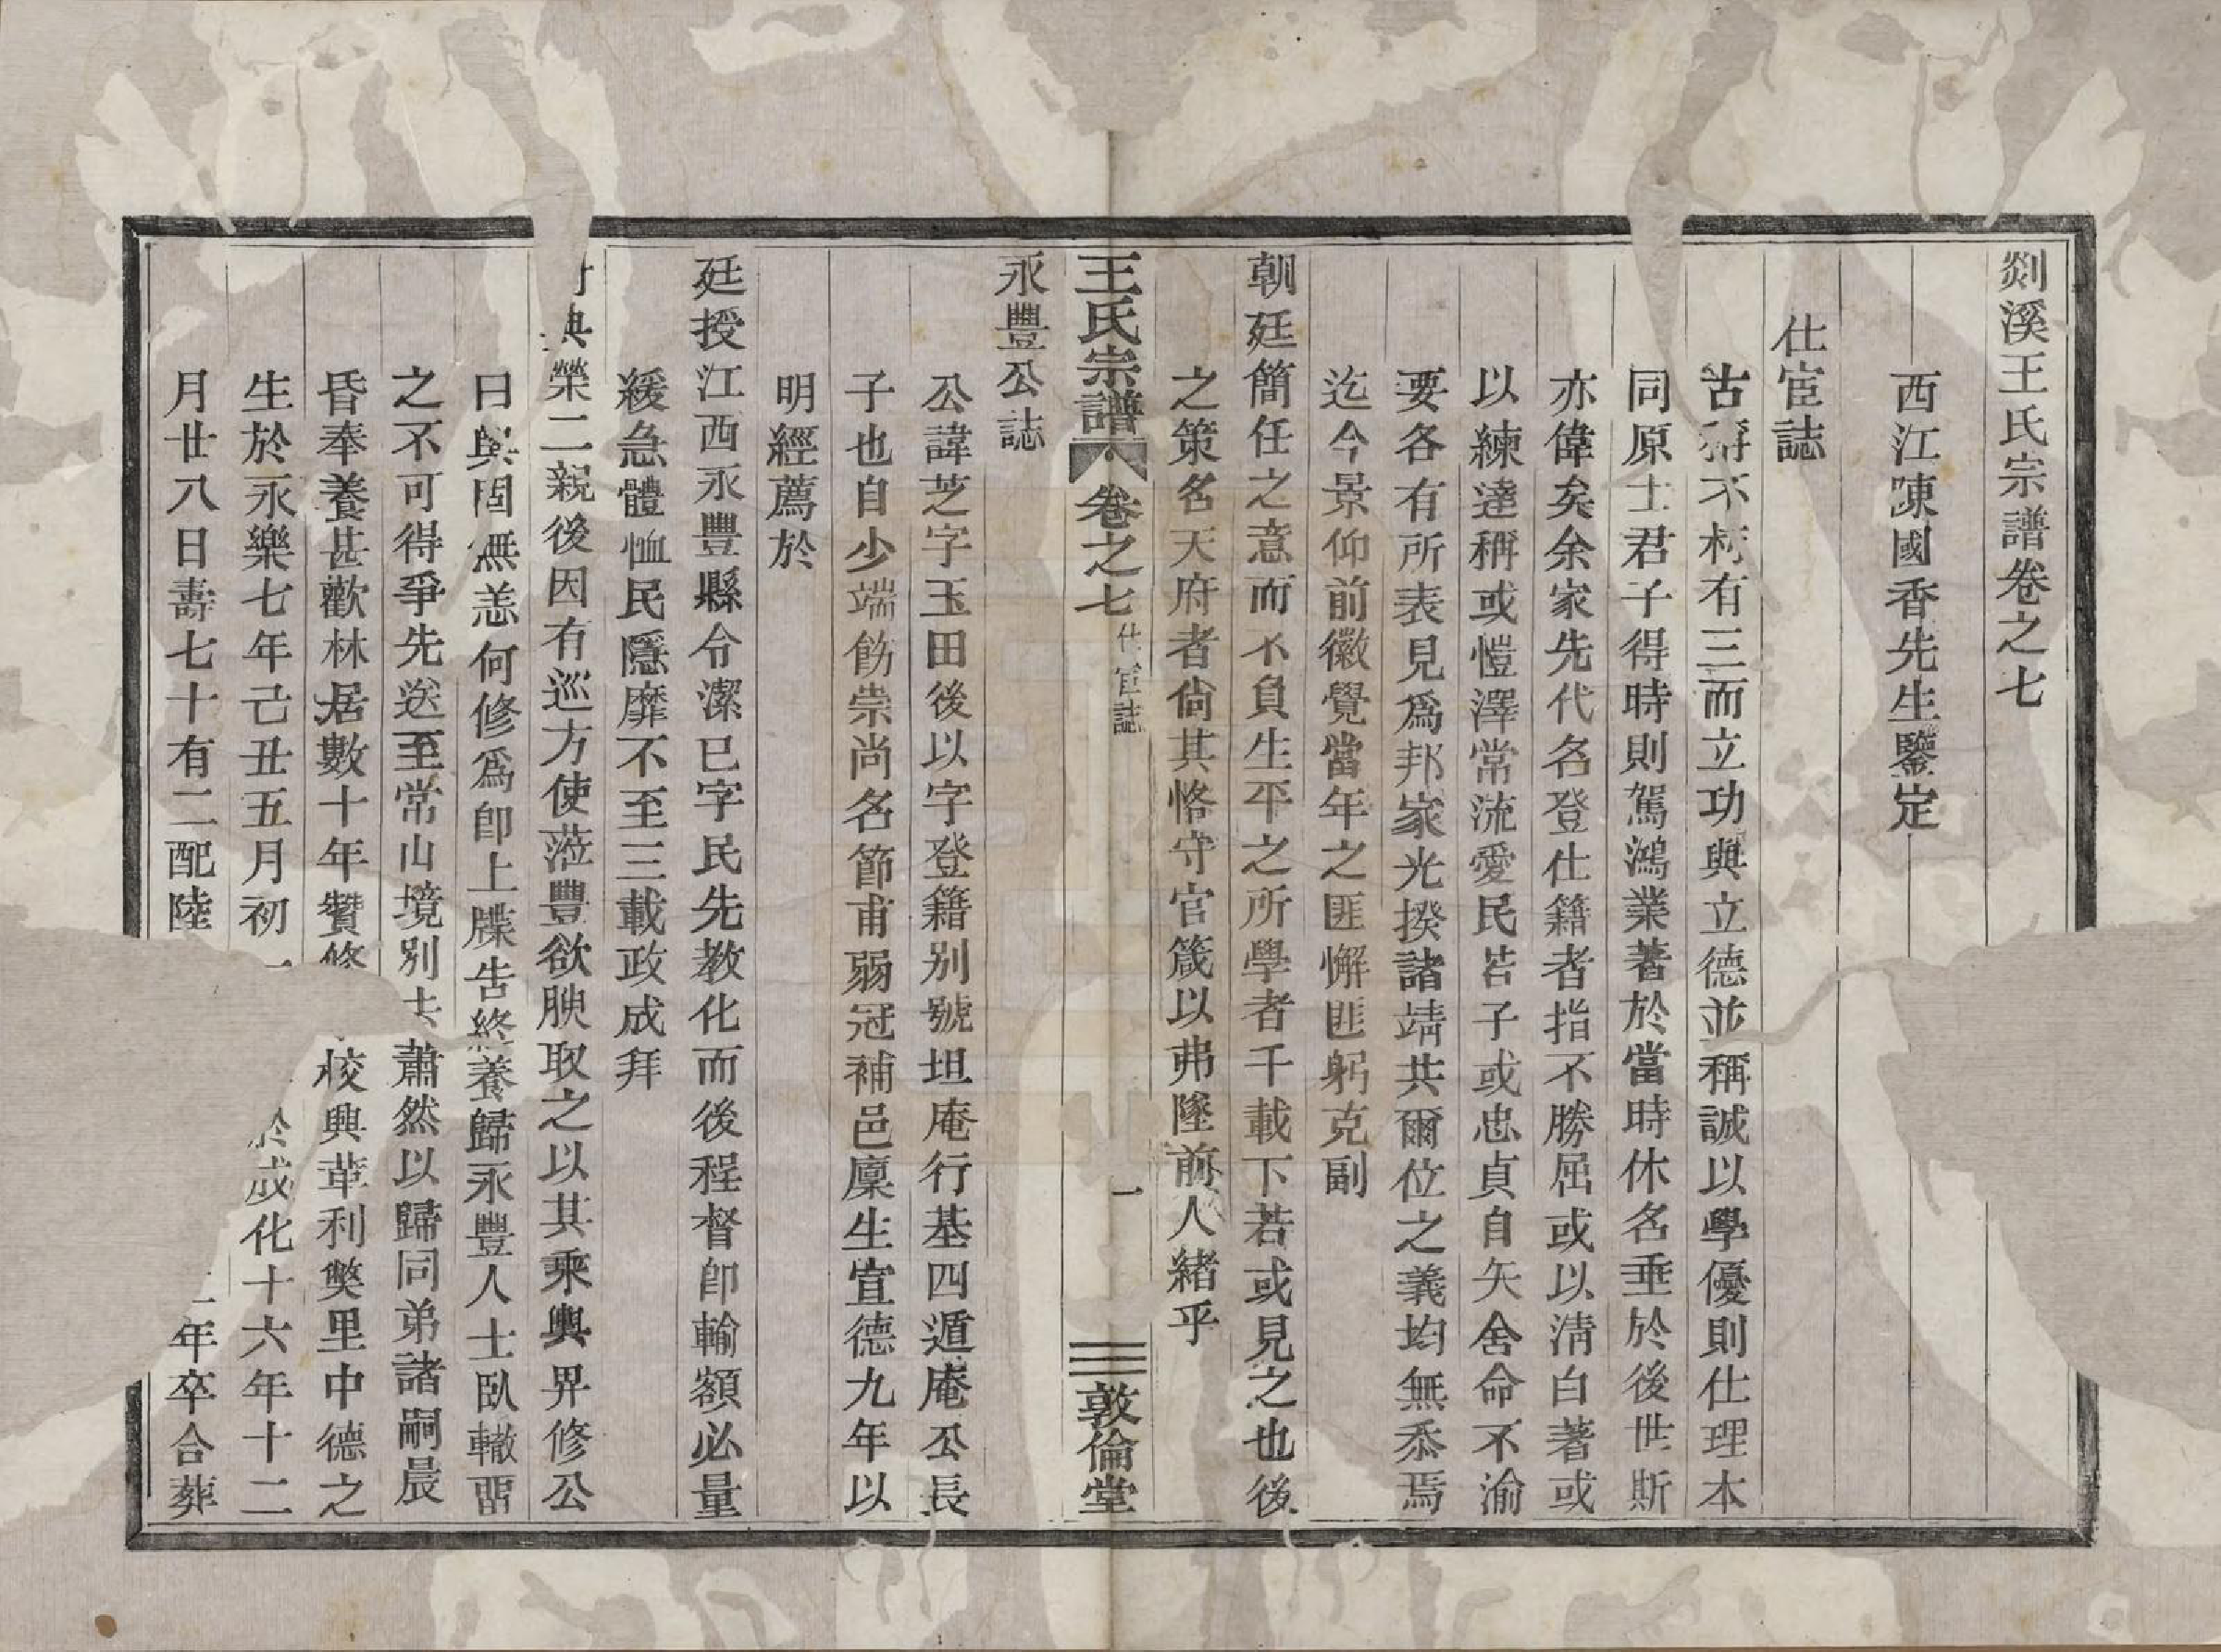 剡溪王氏宗譜卷之七
西江陳國香先生鑒定
仕宦誌
古稱不朽有三而立功與立德並稱誠以學優則仕理本
同原士君子得時則駕鴻業著於當時休名垂於後世斯
亦偉矣余家先代名登仕籍者指不勝屈或以淸白著或
以練達稱或愷澤常流愛民若子或忠貞自矢舍命不渝
要各有所表見爲邦家光揆諸靖共爾位之義均無忝焉
迄今景仰前徽覺當年之匪懈匪躬克副
朝廷簡任之意而不負生平之所學者千載下若或見之也後
之策名天府者尙其恪守官箴以弗墜前人緒乎
王氏宗譜 卷之七 仕宦誌 一 敦倫堂
永豐公誌
公諱芝字玉田後以字登籍别號坦庵行基四遁庵公長
子也自少端飭崇尚名節甫弱冠補邑廩生宣德九年以
明經薦於
廷授江西永豐縣令潔已字民先教化而後程督卽輸額必量
緩急體恤民隱靡不至三載政成拜
典榮二親後因有巡方使蒞豐欲腴取之以其乘輿畀修公
曰輿固無恙何修爲卽上牒告終養歸永豐人士臥轍畱
之不可得爭先送至常山境别去蕭然以歸同弟諸嗣晨
昏奉養甚歡林居數十年贊修校興革利獘里中德之
生於永樂七年己丑五月初一於成化十六年十二
月廿八日壽七十有二配陸年卒合葬